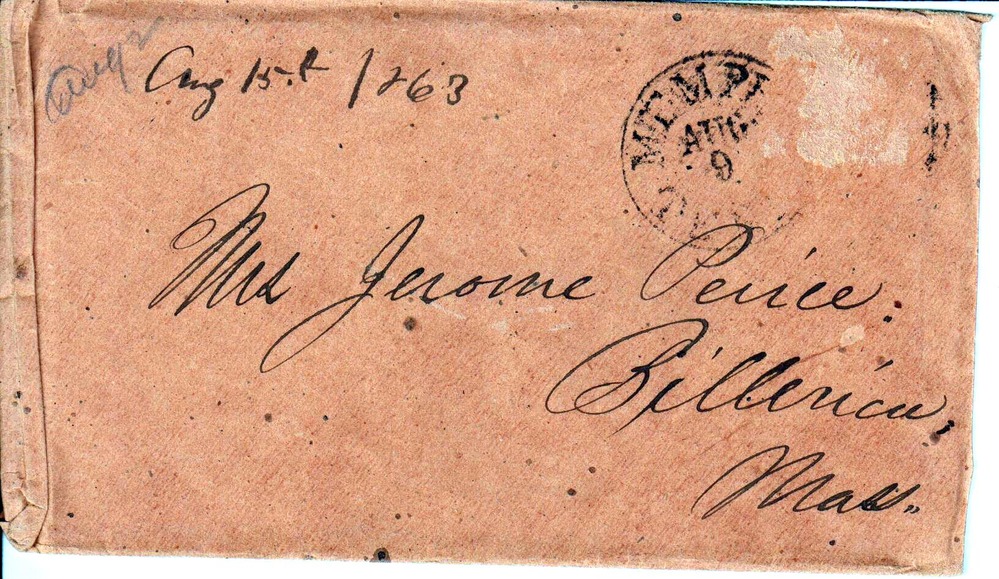 Aug
Aug 15th 1863
MEMPH
AUG
9
Mrs Jerome Peirce.
Billerica,
Mass.